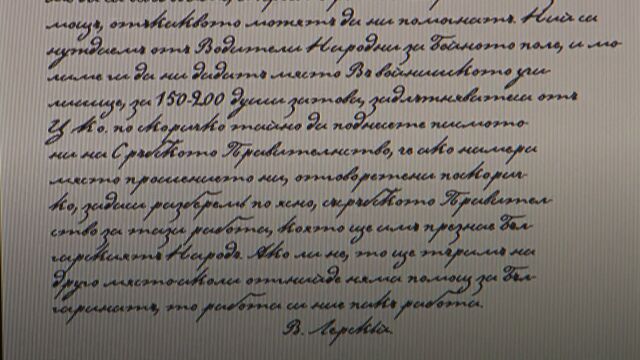 мощь, отъкаквото могатъ да ни помогнатъ. Ний са
нуждаемъ отъ Водители Народни за бойното поле, и мо-
лиме ги да ни дадатъ място Въ войнишкото учи-
лище, за 150-200 души затова, задлъжняватеси отъ
Ц. Ко. по скоричко тайно да поднесете писмото
ни на Сръбкото Правителнство, че ако намери
място прошението ни, отговорете ни поскорич-
ко, задаси разберемъ по ясно, съ сръбкото Правител-
ство за тази работа, която ще имъ презнае Бъл-
гарскиятъ Народъ. Ако ли не, то ще търимъ на
друго място и ако ли отнийде няма помощ за Бъл-
гаринатъ, то работа си ние пакъ работа.
В. Лерскій.